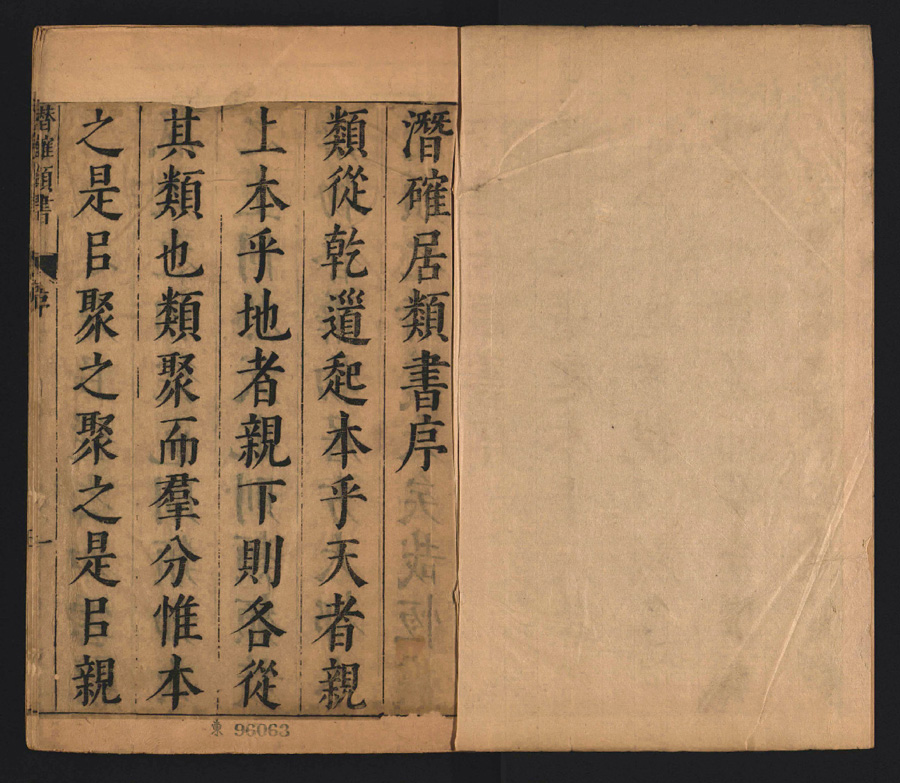 潛確居類書序
類從乾道起本乎天者親
上本乎地者親下則各從
其類也類聚而羣分惟本
之是㠯聚之聚之是㠯親
潛確類書
序
一
東 96063